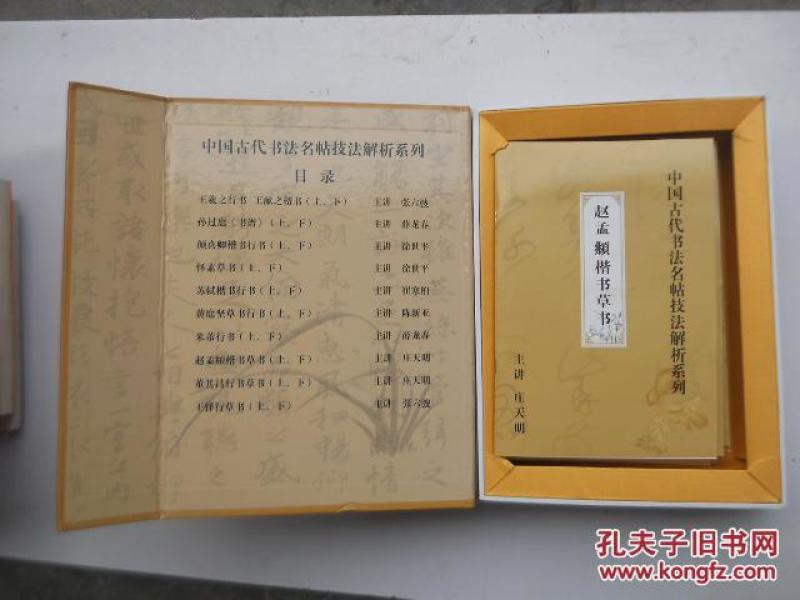 中国古代书法名帖技法解析系列
目录
王羲之行书 王献之楷书(上、下) 主讲 张六弢
孙过庭《书谱》(上、下) 主讲 薛龙春
颜真卿楷书行书(上、下) 主讲 徐世平
怀素草书(上、下) 主讲 徐世平
苏轼楷书行书(上、下) 主讲 崔寒柏
黄庭坚草书行书(上、下) 主讲 陈新亚
米芾行书(上、下) 主讲 薛龙春
赵孟頫楷书草书(上、下) 主讲 庄天明
董其昌行书草书(上、下) 主讲 庄天明
王铎行草书(上、下) 主讲 张六弢
中国古代书法名帖技法解析系列
赵孟頫楷书草书
主讲 庄天明
孔夫子旧书网
www.kongfz.com